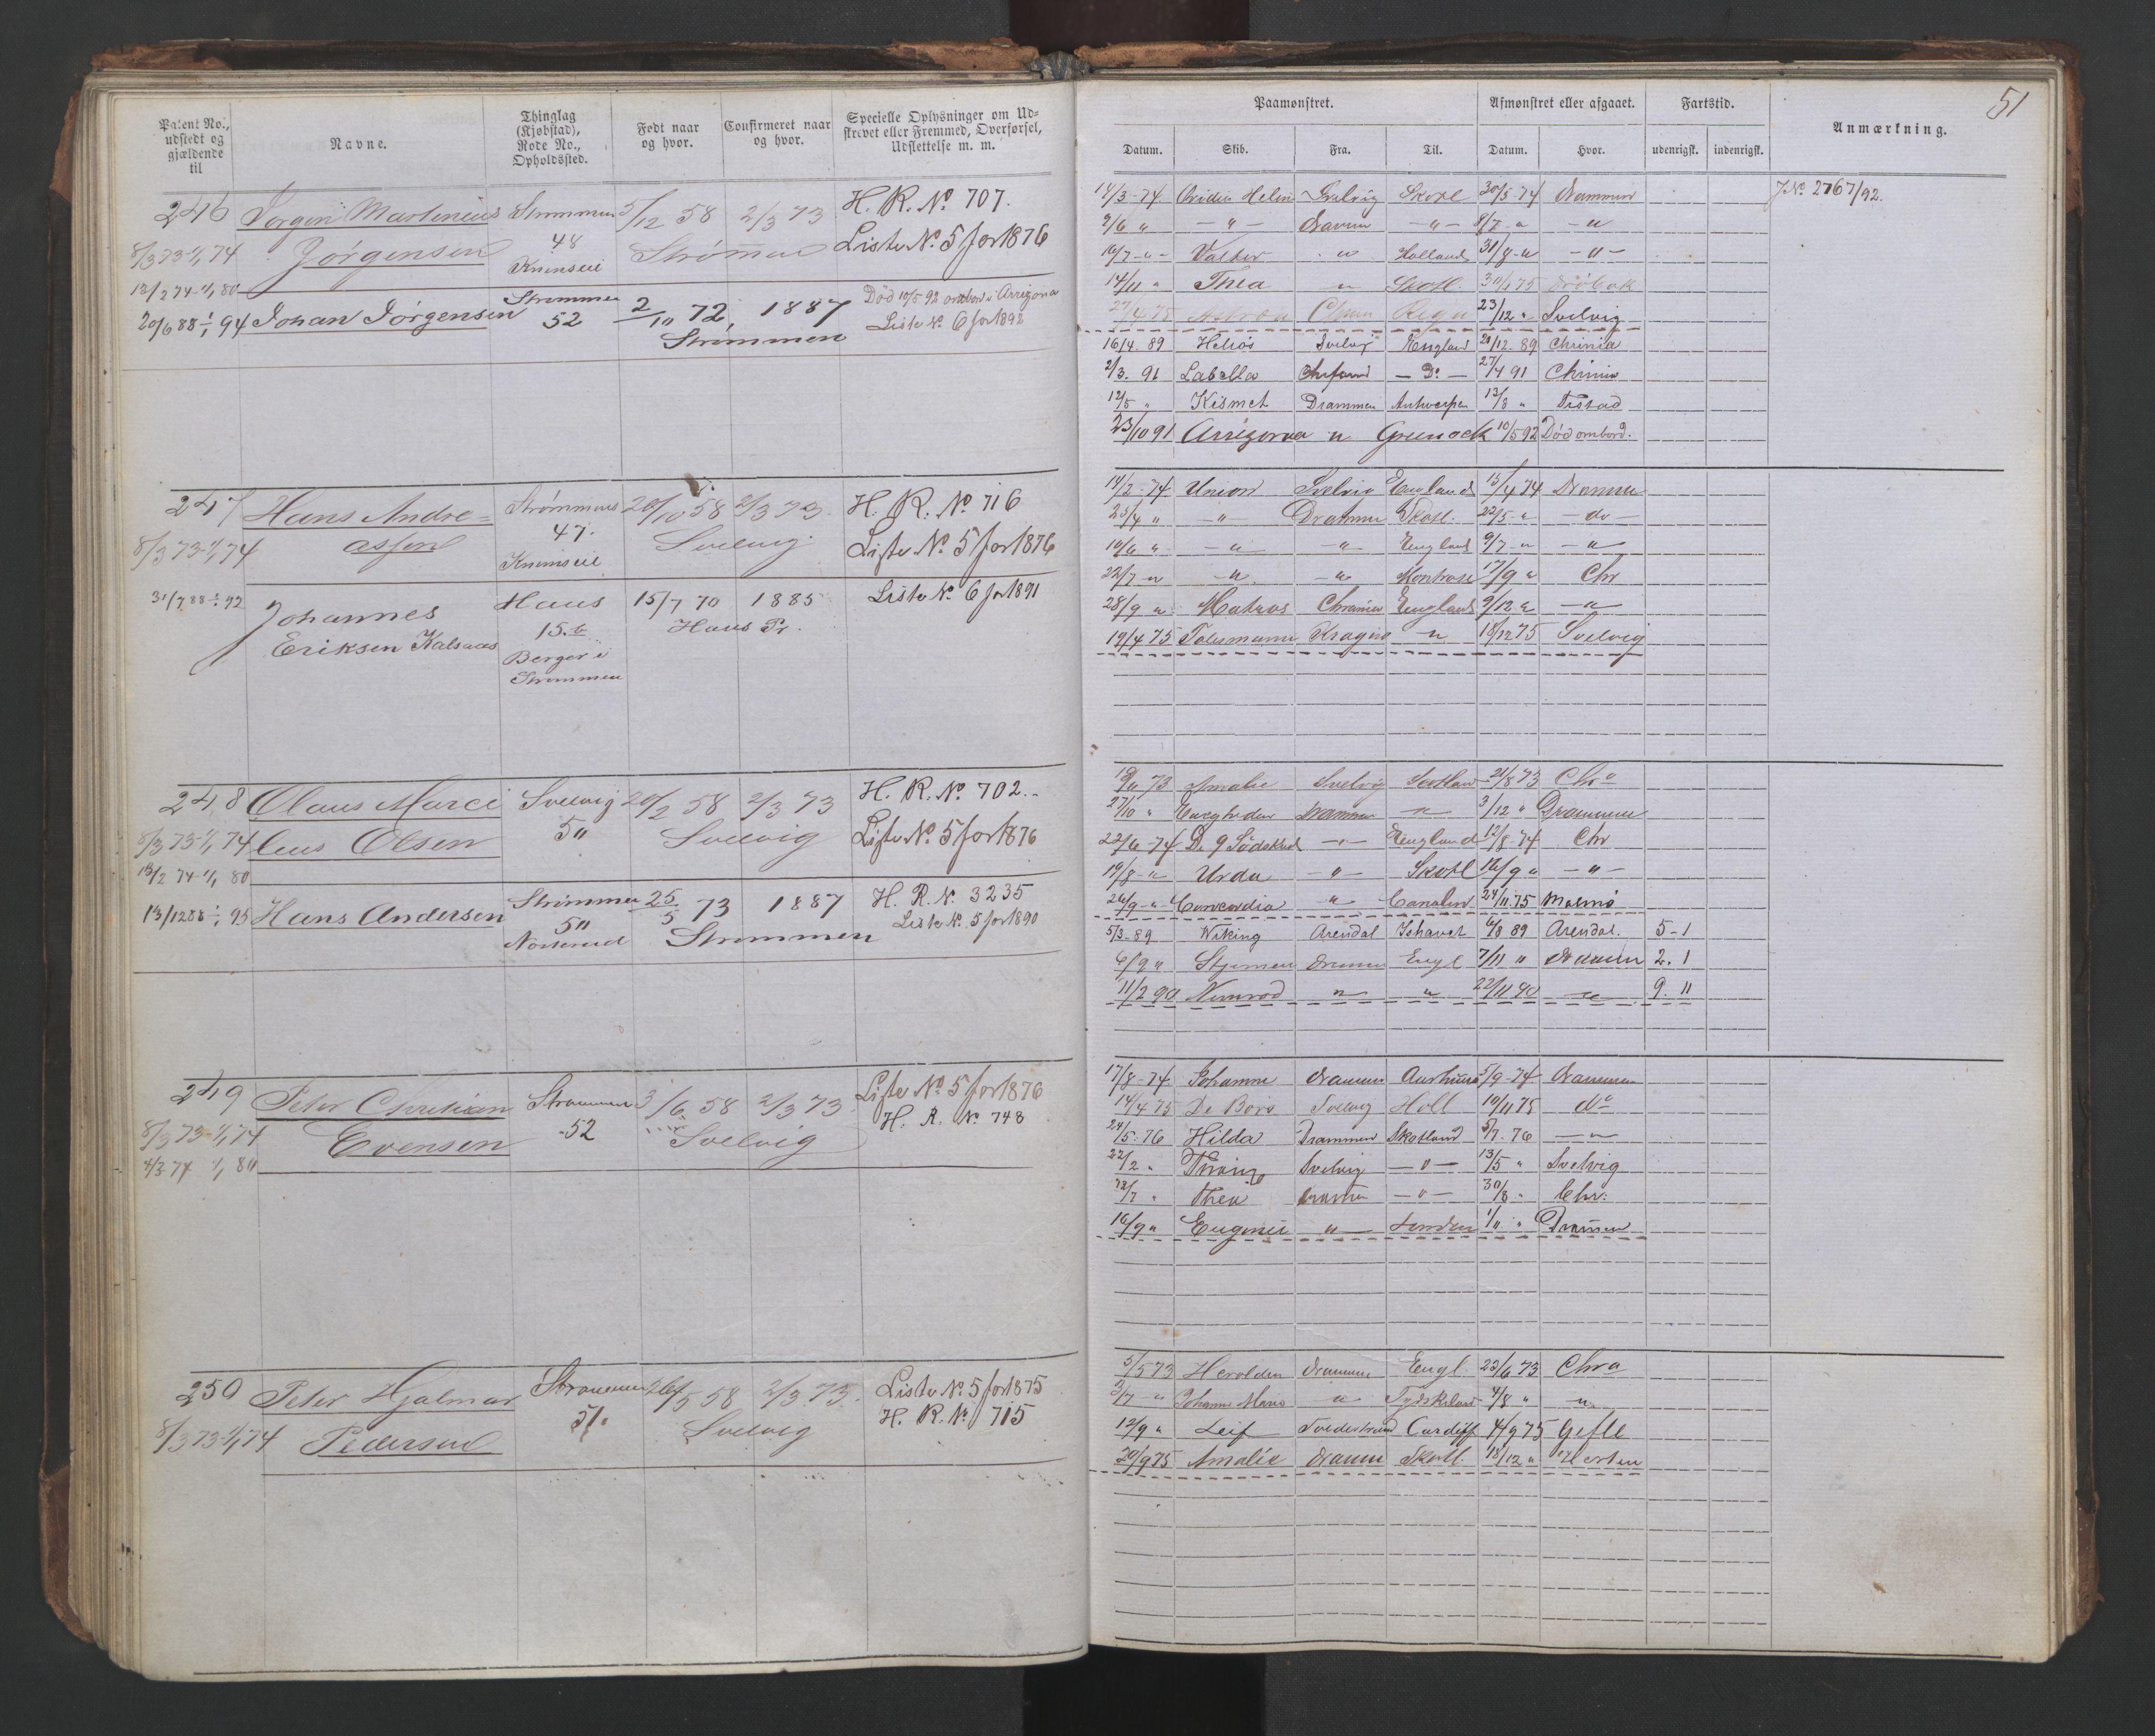 Patent No.,
udstedt og
gjældende
til
Navne.
Thinglag
(Kjøbstad),
Rode No.,
Opholdssted.
Født naar
og hvor.
Confirmeret naar
og hvor.
Specielle Oplysninger om Ud-
skrevet eller Fremmed, Overførsel,
Udslettelse m. m.
246 Jørgen Martinius Strømmen 5/12 58 2/3 73 H. R. No 707.
8/3 73-1/1 74 Jørgensen 48 Strømm Liste No. 5 for 1876
13/2 74-1/1 80
20/6 88 1/1 94 Johan Jørgensen Strømmen 52 2/10 72, 1887 Død 10/5 92 ombord i Arrizona
Strømmen Liste No. 6 for 1892
247 Hans Andre= Strømmens 20/10 58 2/3 73 H. R. No 716
8/3 73-1/1 74 assen 47. Svelvig. Liste No. 5 for 1876
31/7 88 1/1 92 Johannes Haus 15/7 70 1885 Liste No. 6 for 1891
Eriksen Kalsaas 15.b Haus Pr.
Berger i
Strømmen
248 Olaus Marci Svelvig 20/2 58 2/3 73 H. R. No. 702.
8/3 73-1/1 74 lius Olsen 50 Svelvig Liste No. 5 for 1876
13/2 74-1/1 80
13/12 88 1/1 95 Hans Andersen Strømmen 25/5 73 1887 H. R. No. 3235
50 Strømmen Liste No. 5 for 1890
249 Peter Christian Strømmen 3/6 58 2/3 73 Liste No. 5 for 1876
8/3 73-1/1 74 Evensen 52 Svelvig H. R. No 748
4/3 74 1/1 80
250 Peter Hjalmar Strømmen 58 2/3 73. Liste No. 5 for 1875
8/3 73-1/1 74 Pedersen 51. Svelvig H. R. No 715
51
Paamønstret.
Afmønstret eller afgaaet.
Fartstid.
Anmærkning.
Datum. Skib. Fra. Til. Datum. Hvor. udenrigsk. indenrigsk.
14/3-74 Svelvig Skotl 30/5-74 Drammen J No. 2767/92.
2/6 " — " — Dramm — " — 8/7 - " — "
10/7 - " - Valker " Holland 31/8 - " — " —
14/11 " Thea " Skotl. 30/1 75 Drøbak
27/4 75 Riga 23/12 " Svelvig
16/4. 89 Helios Svelvig England 20/12. 89 Chrinia
2/3. 91 Labella — Do — 27/4 91 Chrinia
12/5 " Kismet Drammen Antwerpen 13/8 "
23/10 91 Arrizona " Greenock 10/5 92 Død ombord.
14/2-74 Union Svelvig England 13/4 74 Drammen
23/4 " — " — Drammen Skotl. 22/5 - " — do —
10/6 " — " — — " — England 9/7 - " — "
22/7 - " — " — — " — Montrose 17/9 " Chr
28/9 " Matros Chrania England 9/12 " — "
19/4 75 Talesmann Kragerø — " 18/12 75 Svelvig
73 Amalie Svelvig Scotland 21/8 73 Chra
27/10 " Drammen " 3/12 " Drammen
22/6-74 De 9 Södskend — " — England 12/8-74 Chr
19/8 - " Urda — " — Skotl 16/9 " — " —
26/9 - " Concordia — " — Canalen 24/11 75 Malmö
5/3-89 Wiking Arendal Ishavet 6/8 89 Arendal. 5-1
6/9 " Stjernen Drammen Engl 7/11 " Drammen 2. 1
11/2 90 Nimrod — " — " 22/11 90 — " 9. 11
17/8-74 Johanne Drammen Aarhuus 5/9-74 Drammen
14/4 75 De Bors Svelvig Holl 19/11 75 do
24/5-76 Hilda Drammen Skotland 5/7. 76 — "
22/2 " Svelvig — " — 13/5 " Svelvig
12/7 " Thea Dramm — " — 30/8 " Chr.
16/9 " Eugenie — " — London 1/11 " Drammen
5/5 73 Herolden Drammen Engl. 23/6 73 Chra
2/7 - " Johanne Marie — " Tydskland 4/8 " — "
12/9 " Leif Tvedestrand Cardiff 4/9 75 Gefle
20/9 75 Amalie Dramm Skotl. 18/12 " Horten